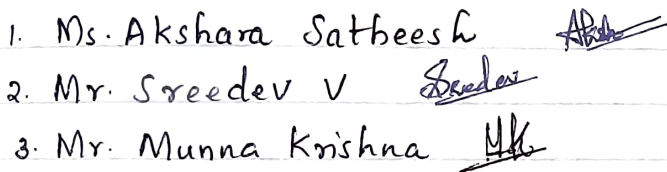 1. Ms. Akshara Satheesh
2. Mr. Sreedev V Sreedev
3. Mr. Munna Krishna MK